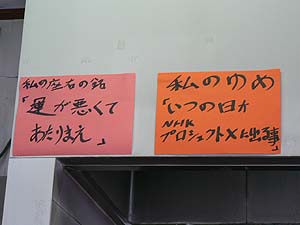 私の座右の銘
「運が悪くて
あたりまえ」
私のゆめ
「いつの日か
NHK
プロジェクトXに出る事」